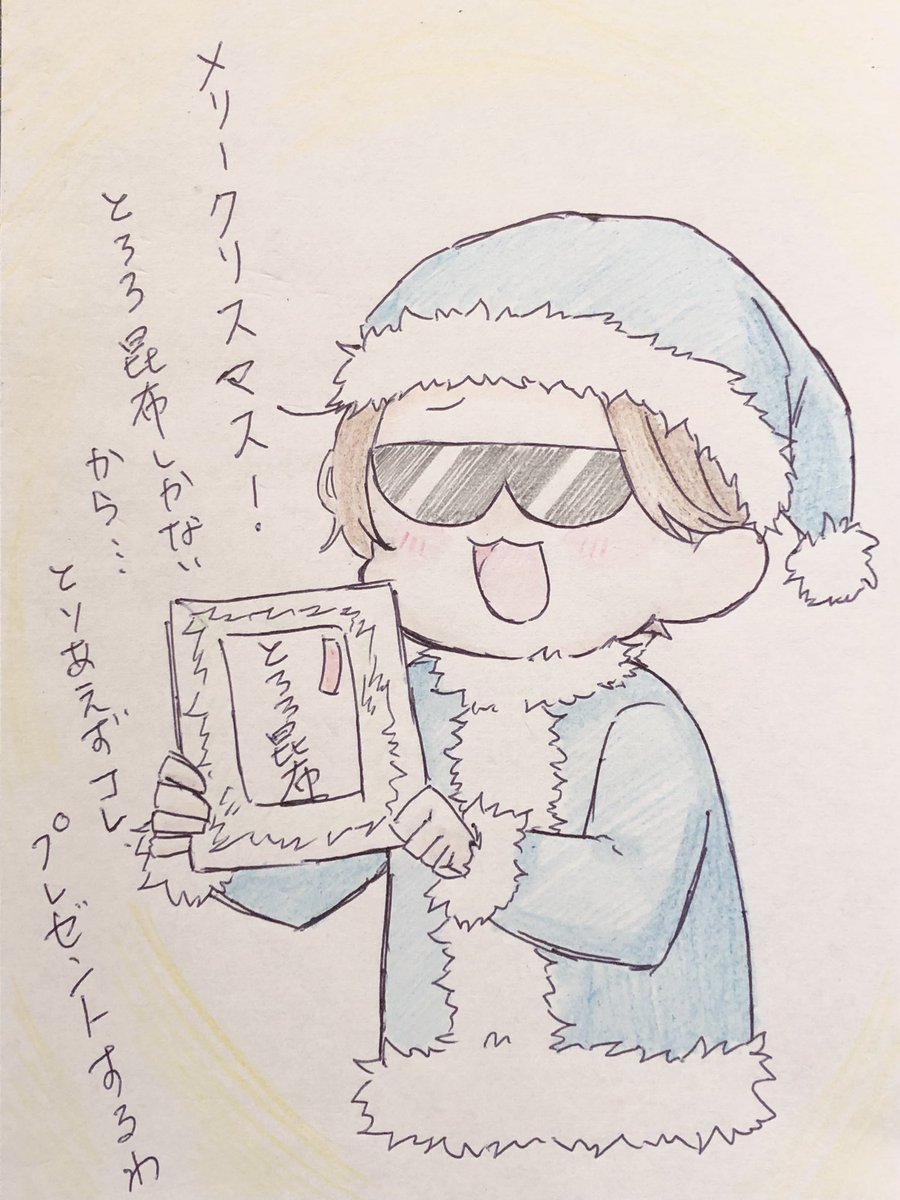 メリークリスマス!
とろろ昆布しかない
から…
とりあえずコレ
プレゼントするわ
とろろ昆布